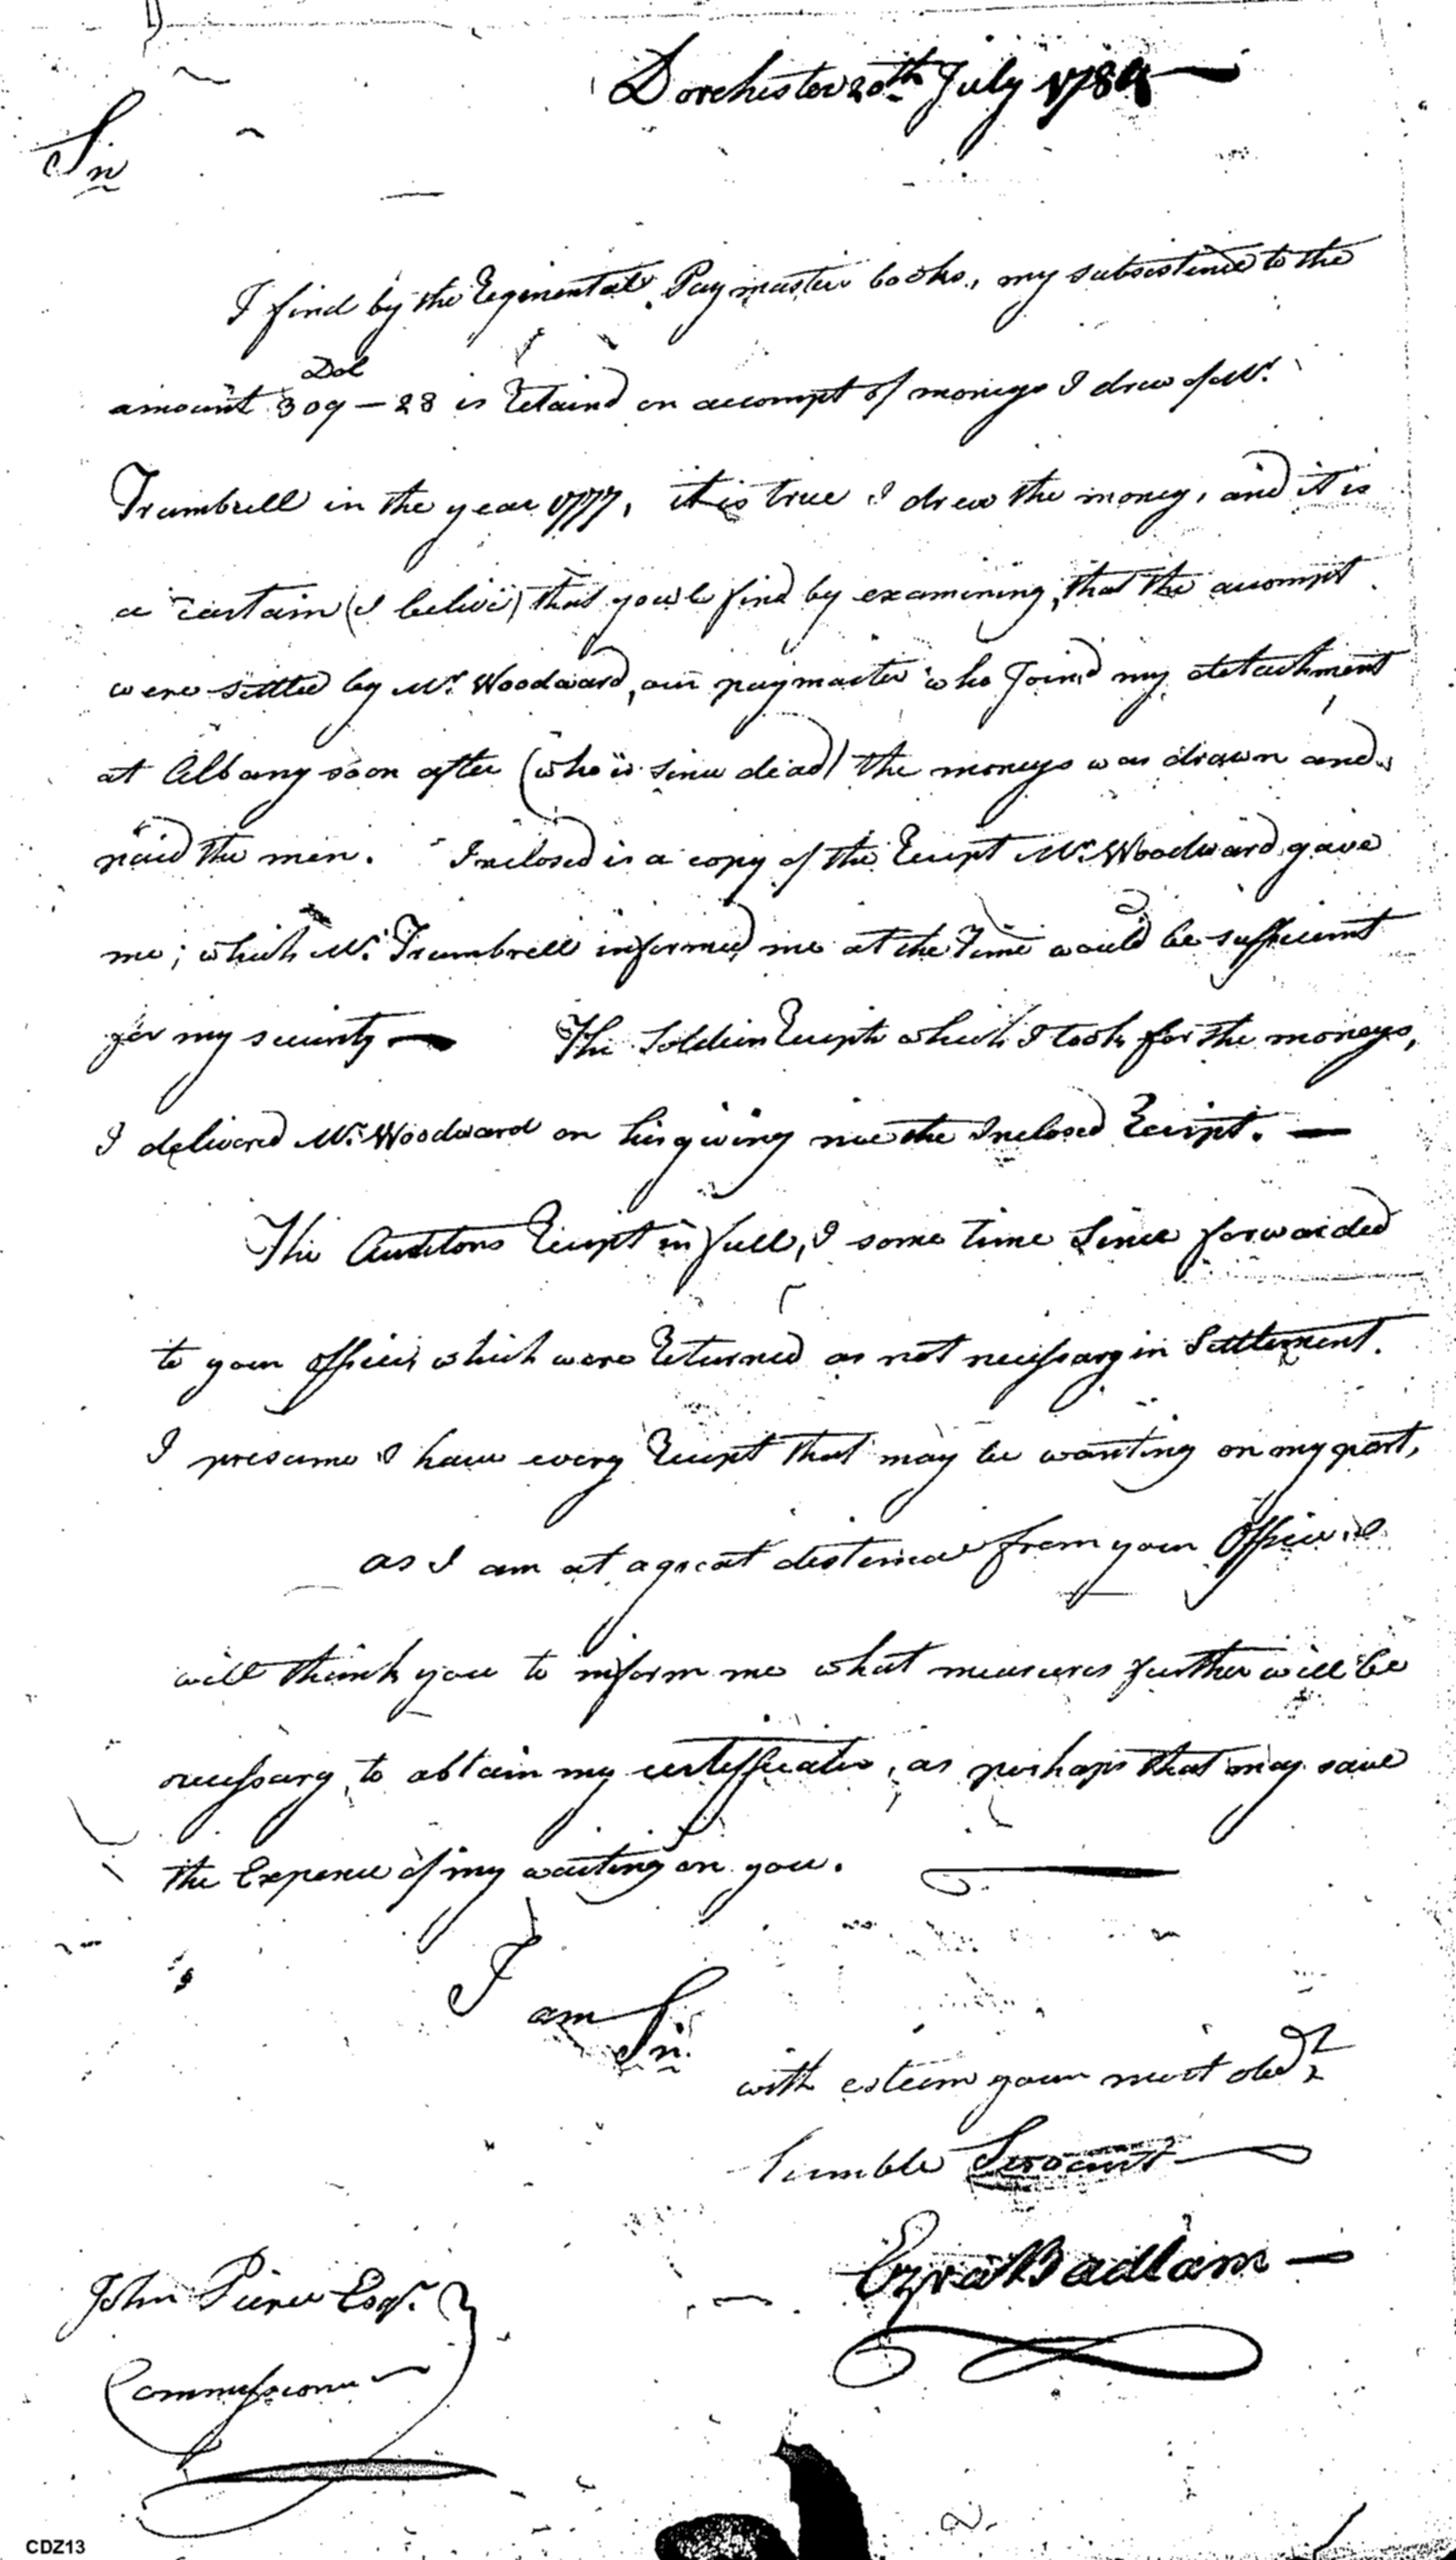 Dorchester 20th July 1784
Sir
I find by the Regimental Paymasters books, my subsistence to the
Dol
amount 309-28 is Retaind on accompt of moneys I drew of Mr.
Trumbrell in the year 1777, it is true I drew the money, and it is
a certain (I belive) that youl find by examining, that the accompt
were settled by Mr. Woodward, our paymaster who Joind my detachment
at Albany soon after (who is since dead) the moneys was drawn and
paid the men. Inclosed is a copy of the Receipt Mr. Woodward gave
me; which Mr. Trumbrell informed me at the Time would be sufficient
for my security — The Soldiers Receipts which I took for the moneys,
I delivered Mr. Woodward on his giving me the Inclosed Receipt. —
The Auditors Receipt in full, I some time Since forwarded
to your office, which were Returned as not necessary in Settlement.
I presume I have every Receipt that may be wanting on my part,
as I am at a great distance from your Office
will thank you to inform me what measures further will be
necessary to obtain my certifficates, as perhaps that may save
the Expence of my waiting on you.
I
am
Sir.
with esteem your most obedt
humble Servant
Ezra Badlam —
John Pierce Esqr.
Commissioner
CDZ13